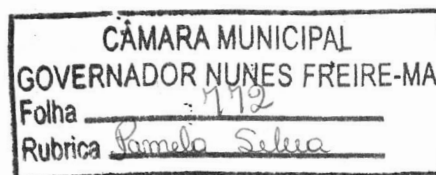 CÂMARA MUNICIPAL
GOVERNADOR NUNES FREIRE-MA
Folha 112
Rubrica Pamela Silva